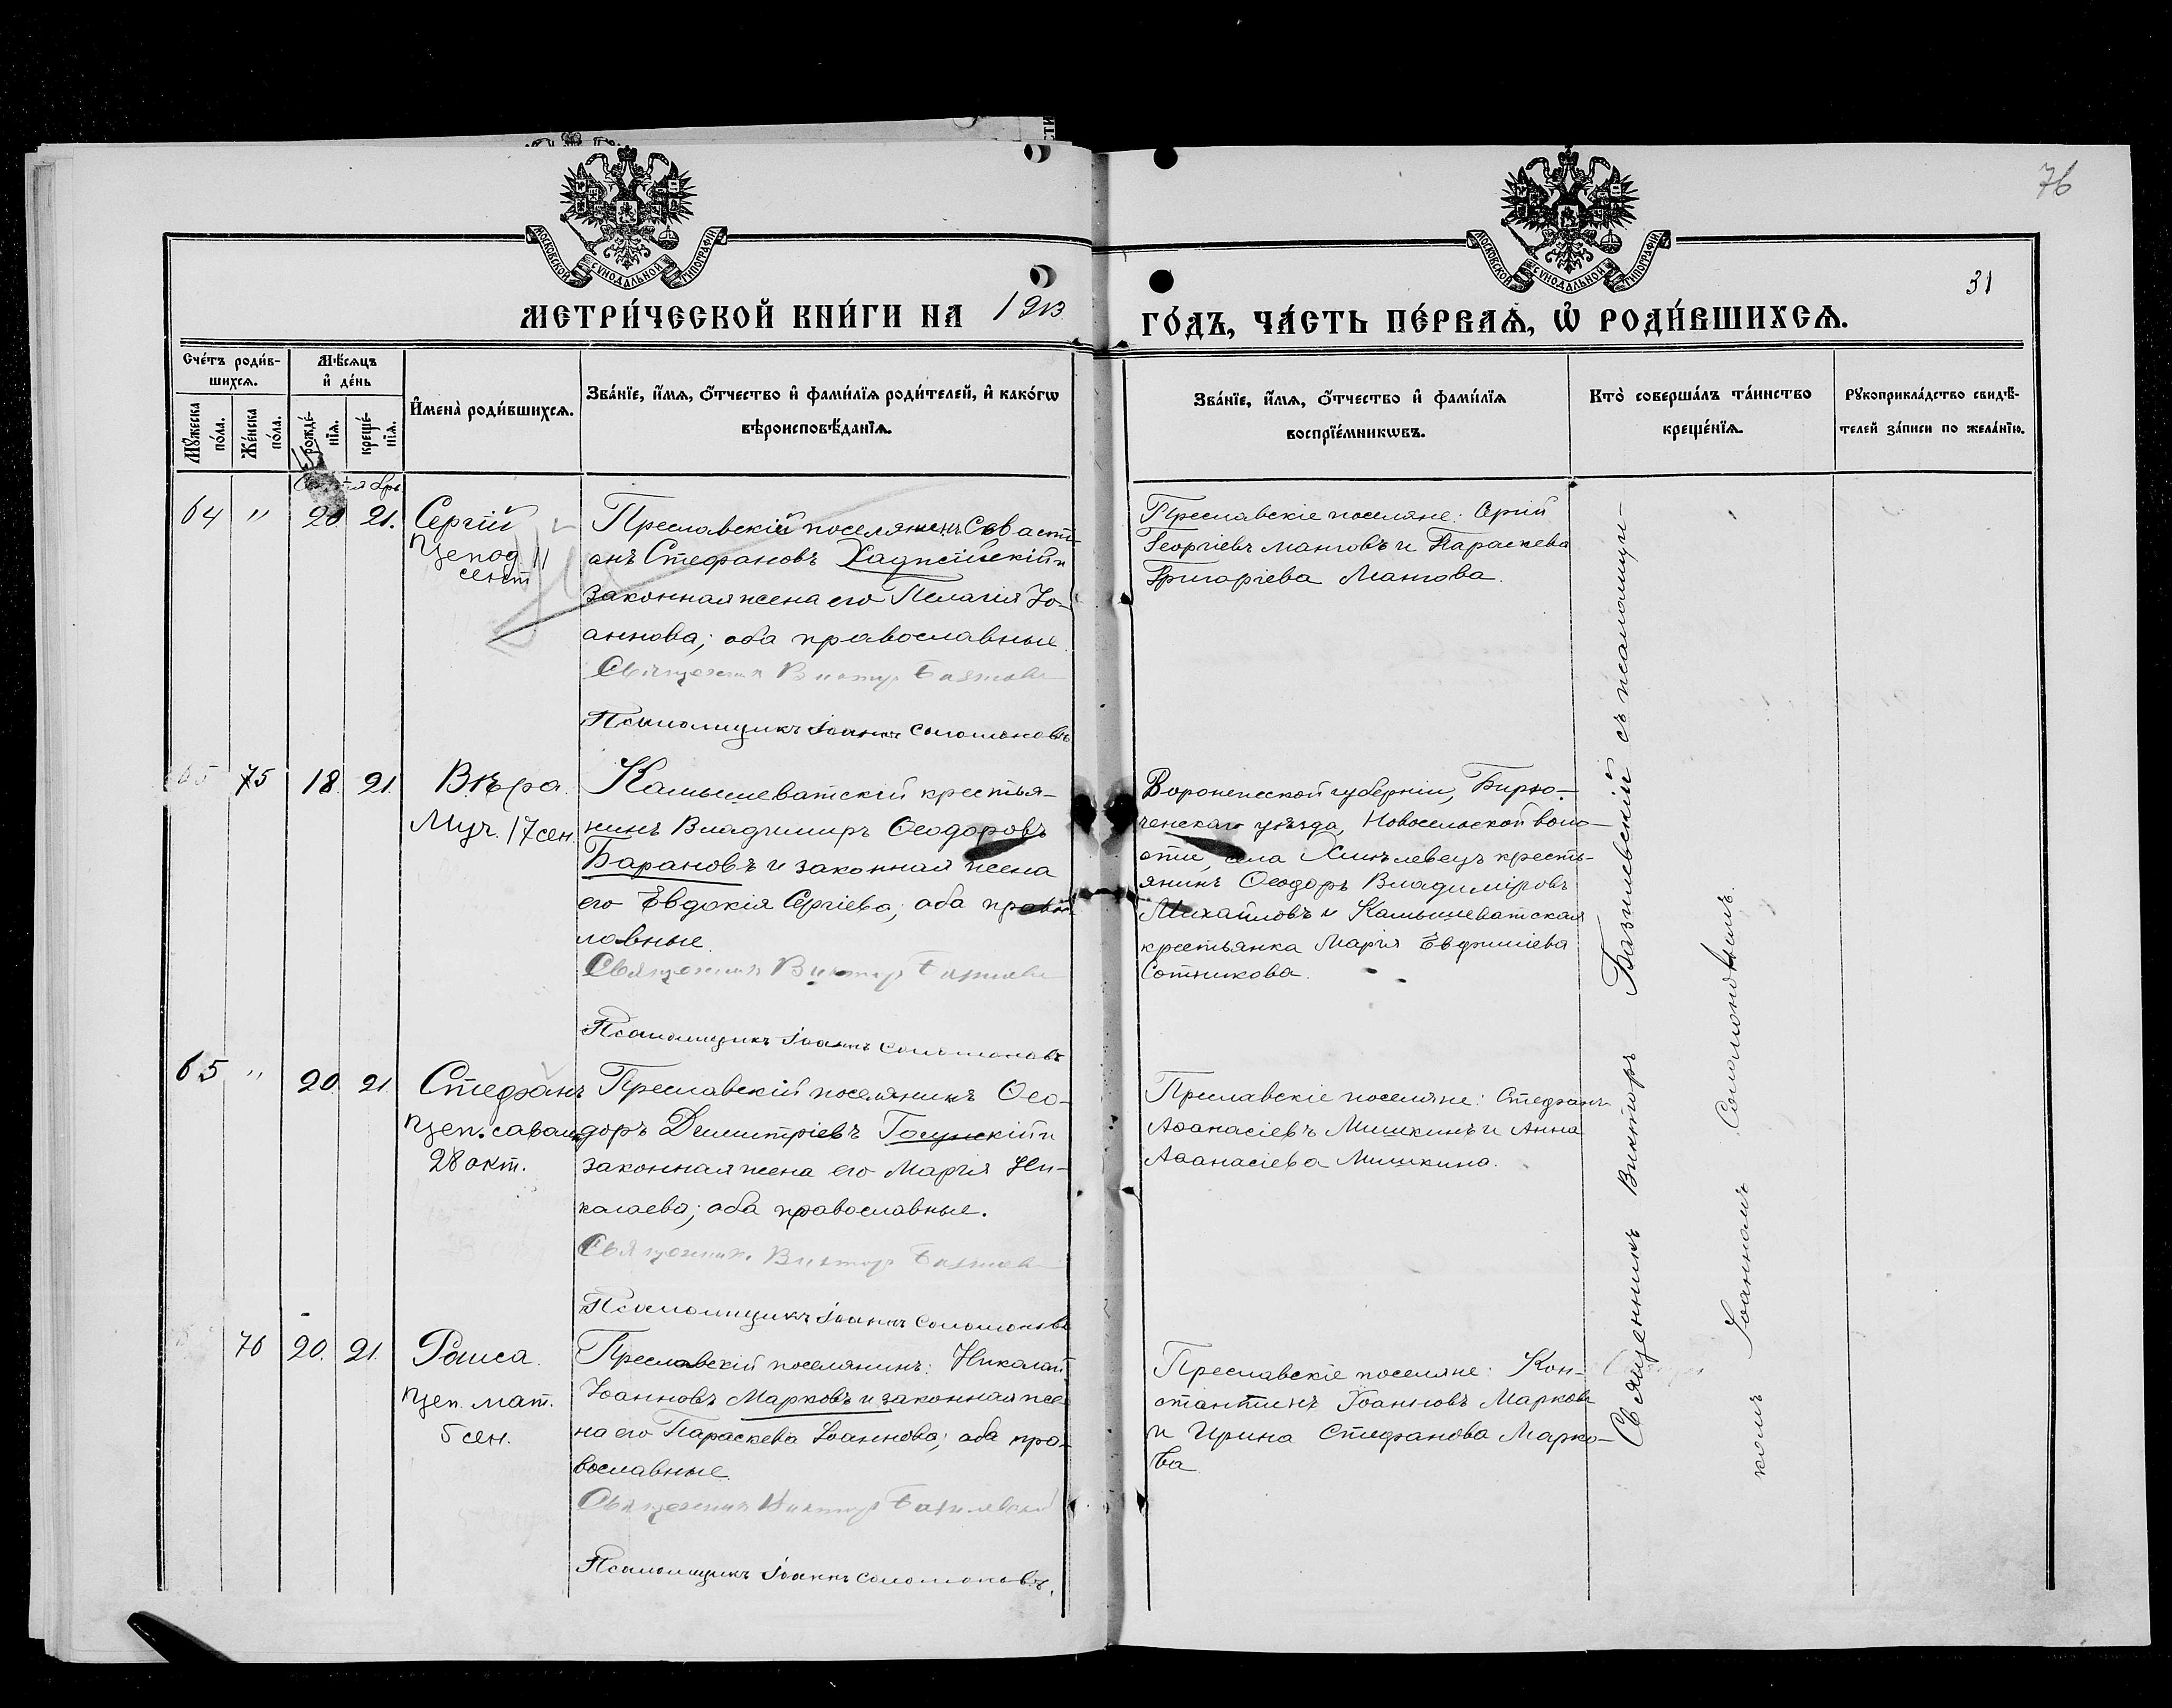 76
31
МОСКОВСКОЙ СѴНОДАЛЬНОЙ ТИПОГРАФІИ
МОСКОВСКОЙ СѴНОДАЛЬНОЙ ТИПОГРАФІИ
МЕТРИ́ЧЕСКОЙ КНИ́ГИ НА 1913
ГО́ДЪ, ЧА́СТЬ ПЕ́РВАѦ, Ѡ҆ РОДИ́ВШИХСѦ.
Сче́тъ роди́в-
шихсѧ.
Мꙋ́жеска
по́ла.
Же́нска
по́ла.
Мѣ́сѧцъ
и҆ де́нь
рожде́-
нїѧ.
креще́-
нїѧ.
И҆мена̀ роди́вшихсѧ.
Зва́нїе, и҆́мѧ, ѻ҆́тчество и҆ фами́лїѧ роди́телей, и҆ како́гѡ
вѣроисповѣ́данїѧ.
Зва́нїе, и҆́мѧ, ѻ҆́тчество и҆ фами́лїѧ
воспрїе́мникѡвъ.
Кто̀ соверша́лъ та́инство
креще́нїѧ.
Рꙋкоприкла́дство свидѣ́-
телей за́писи по жела́нїю.
64 " 20 21. Сергій
Преславскій поселянинъ Севасти-
анъ Стефановъ Хаджійскій и
законная жена его Пелагія Іо-
аннова; оба православные.
Священникъ Викторъ
Псаломщикъ Іоаннъ Соломоновъ
Преславскіе поселяне: Сергій
Георгіевъ Мантовъ и Параскева
Григоріева Мантова.
75 18. 21. Вѣра.
Муч. 17 сен.
Камышеватскій крестья-
нинъ Владимиръ Ѳеодоровъ
Барановъ и законная жена
его Евдокія Сергіева; оба правос-
лавные.
Священникъ Викторъ
Псаломщикъ Іоаннъ Соломоновъ
Воронежской губерніи, Бирю-
ченскаго уѣзда, Новосельской воло-
сти, села крестья-
янинъ Ѳеодоръ Владиміровъ
Михайловъ и Камышеватская
крестьянка Марія Евфиміева
Сотникова.
65 " 20. 21. Стефанъ
Преп. саваит
28 окт.
Преславскій поселянинъ Ѳео-
доръ Димитріевъ и
законная жена его Марія Ни-
калаева; оба православные.
Священникъ Викторъ
Псаломщикъ Іоаннъ Соломоновъ
Преславскіе поселяне: Стефанъ
Аѳанасіевъ Мишкинъ и Анна
Аѳанасіева Мишкина.
76 20. 21. Раиса.
5 сен.
Преславскій поселянинъ: Николай
Іоанновъ Марковъ и законная же-
на его Параскева Іоаннова; оба пра-
вославные.
Священникъ Викторъ Базилевскій
Псаломщикъ Іоаннъ Соломоновъ.
Преславскіе поселяне: Кон-
стантинъ Іоанновъ Марковъ
и Ирина Стефанова Марко-
ва
Священникъ Викторъ Базилевскій съ псаломщи-
комъ Іоанномъ Соломоновымъ.